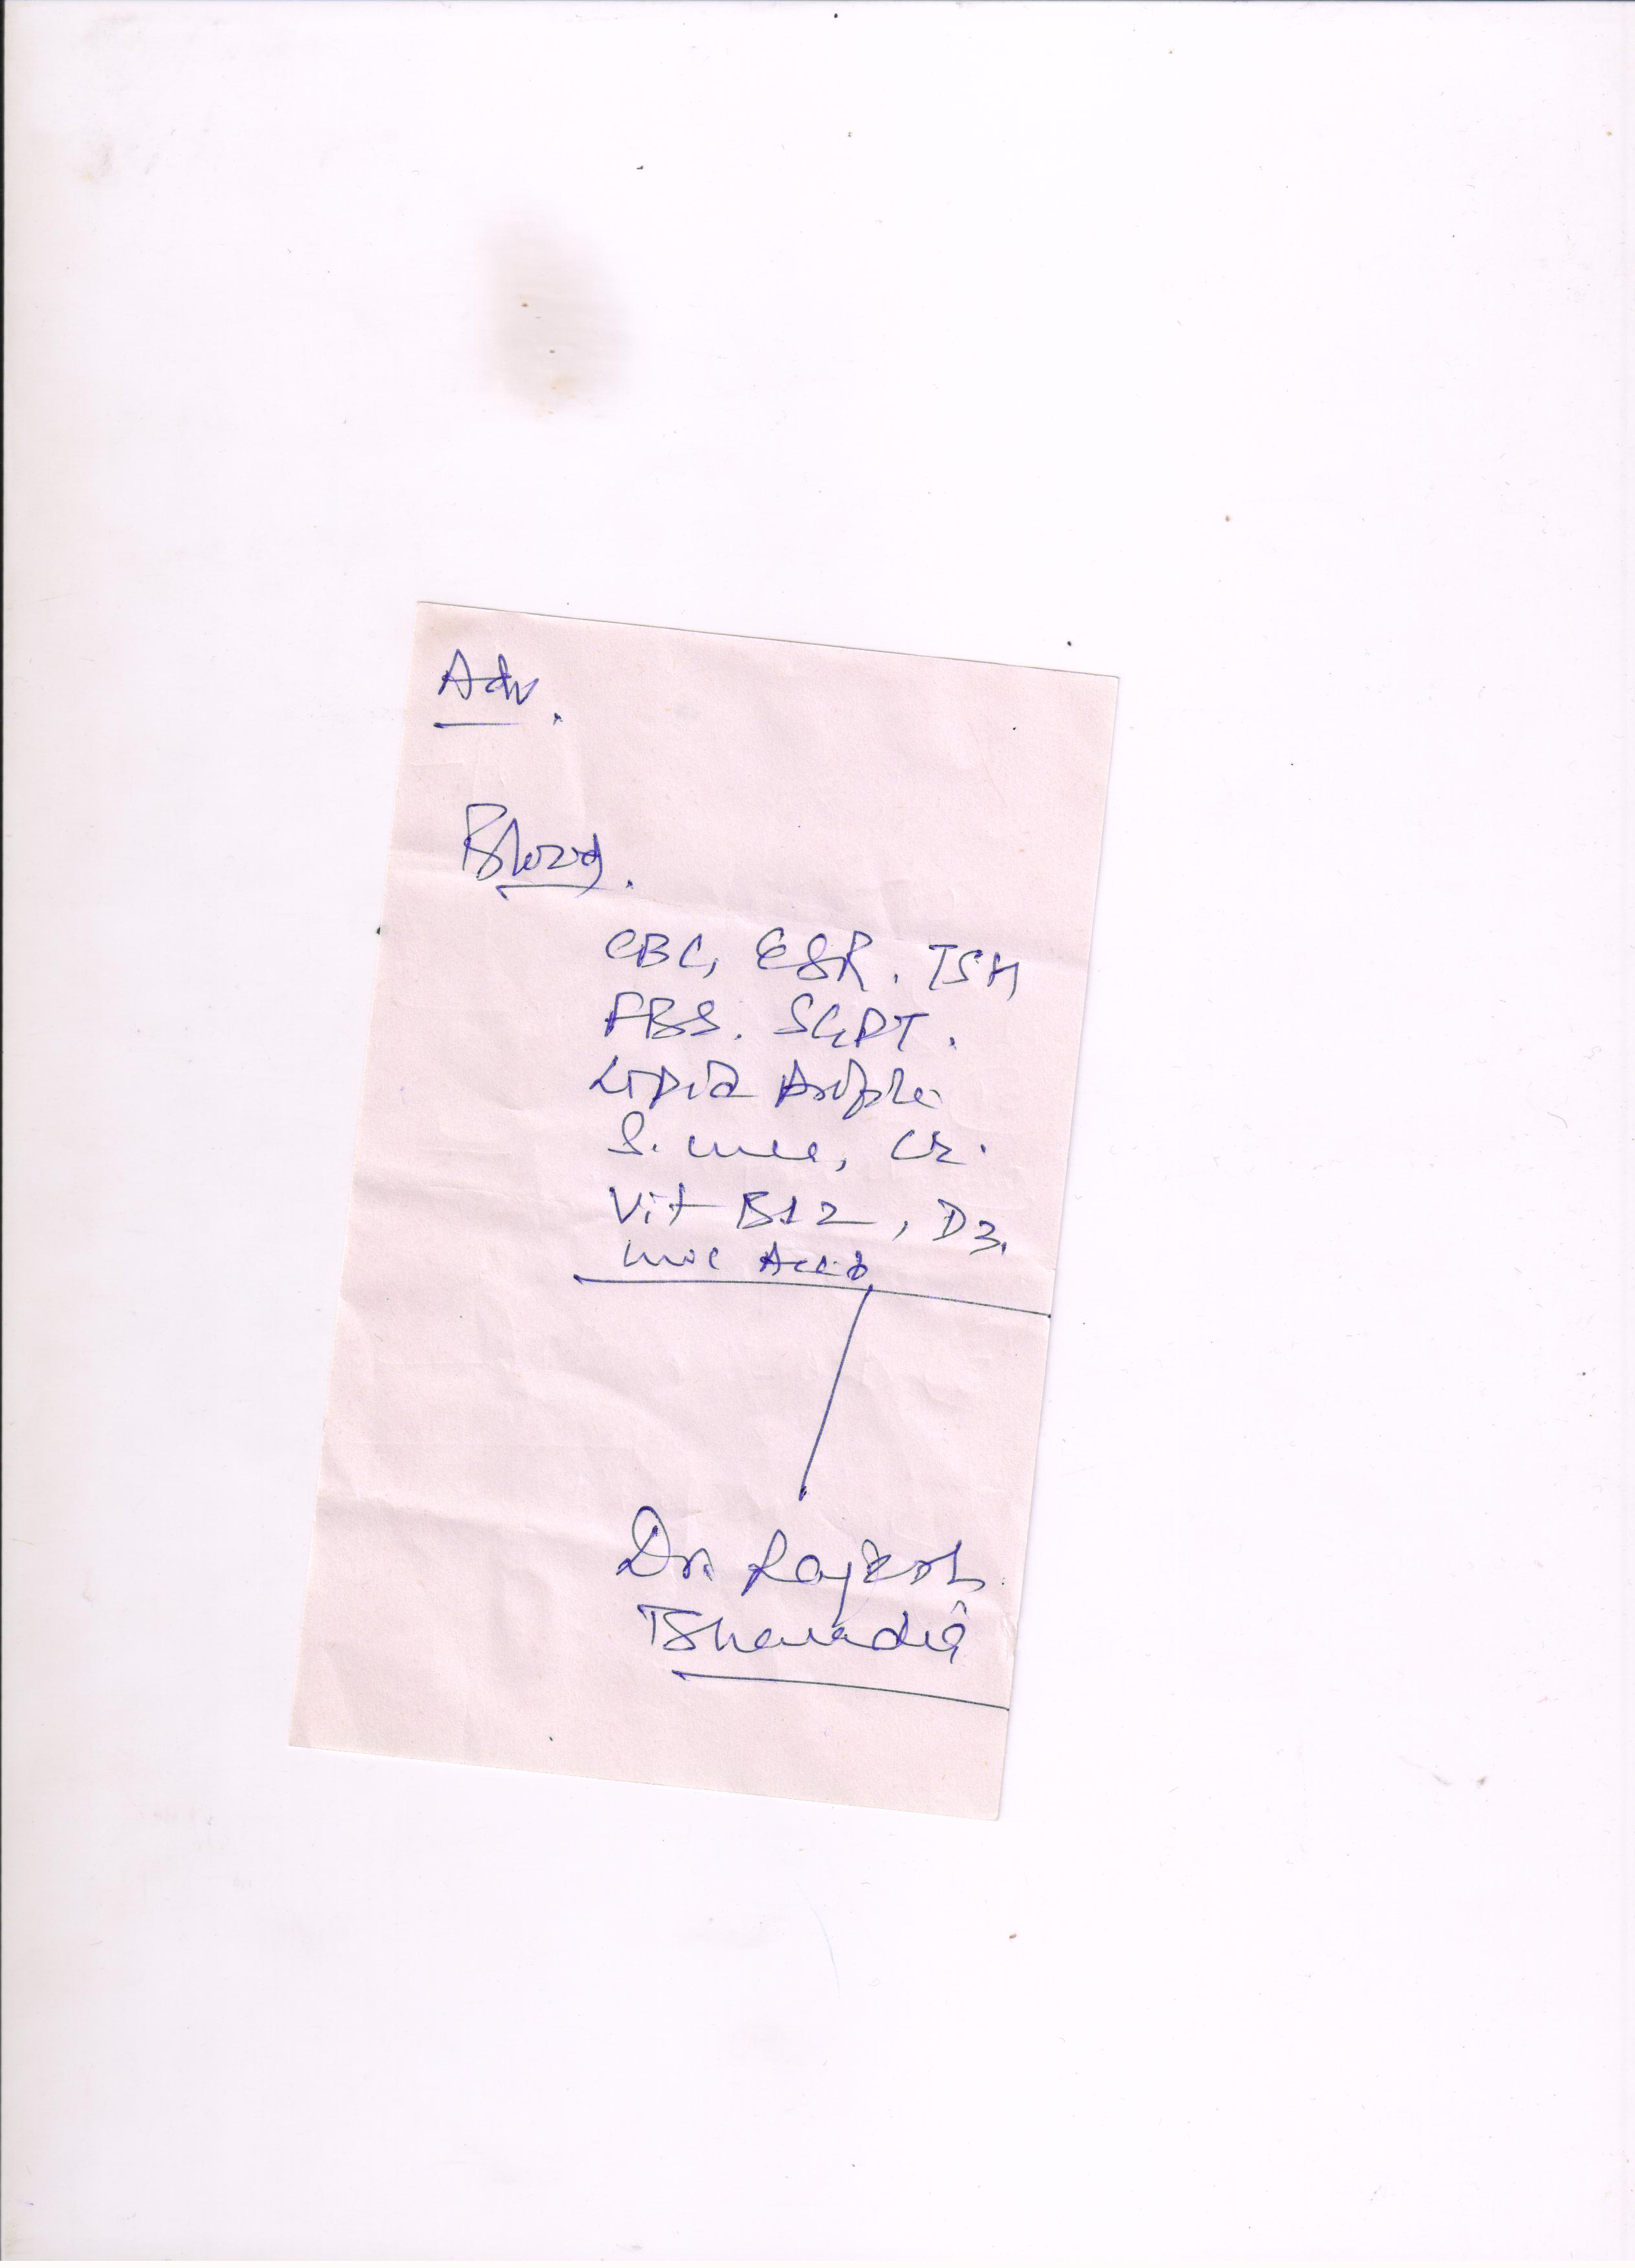 Adv.
Blood.
CBC, ESR. TSH
FBS. SGPT.
Lipid Profile
S. urea, Cr.
Vit B12, D3.
Uric Acid
Dr. Rajesh
Bharadia